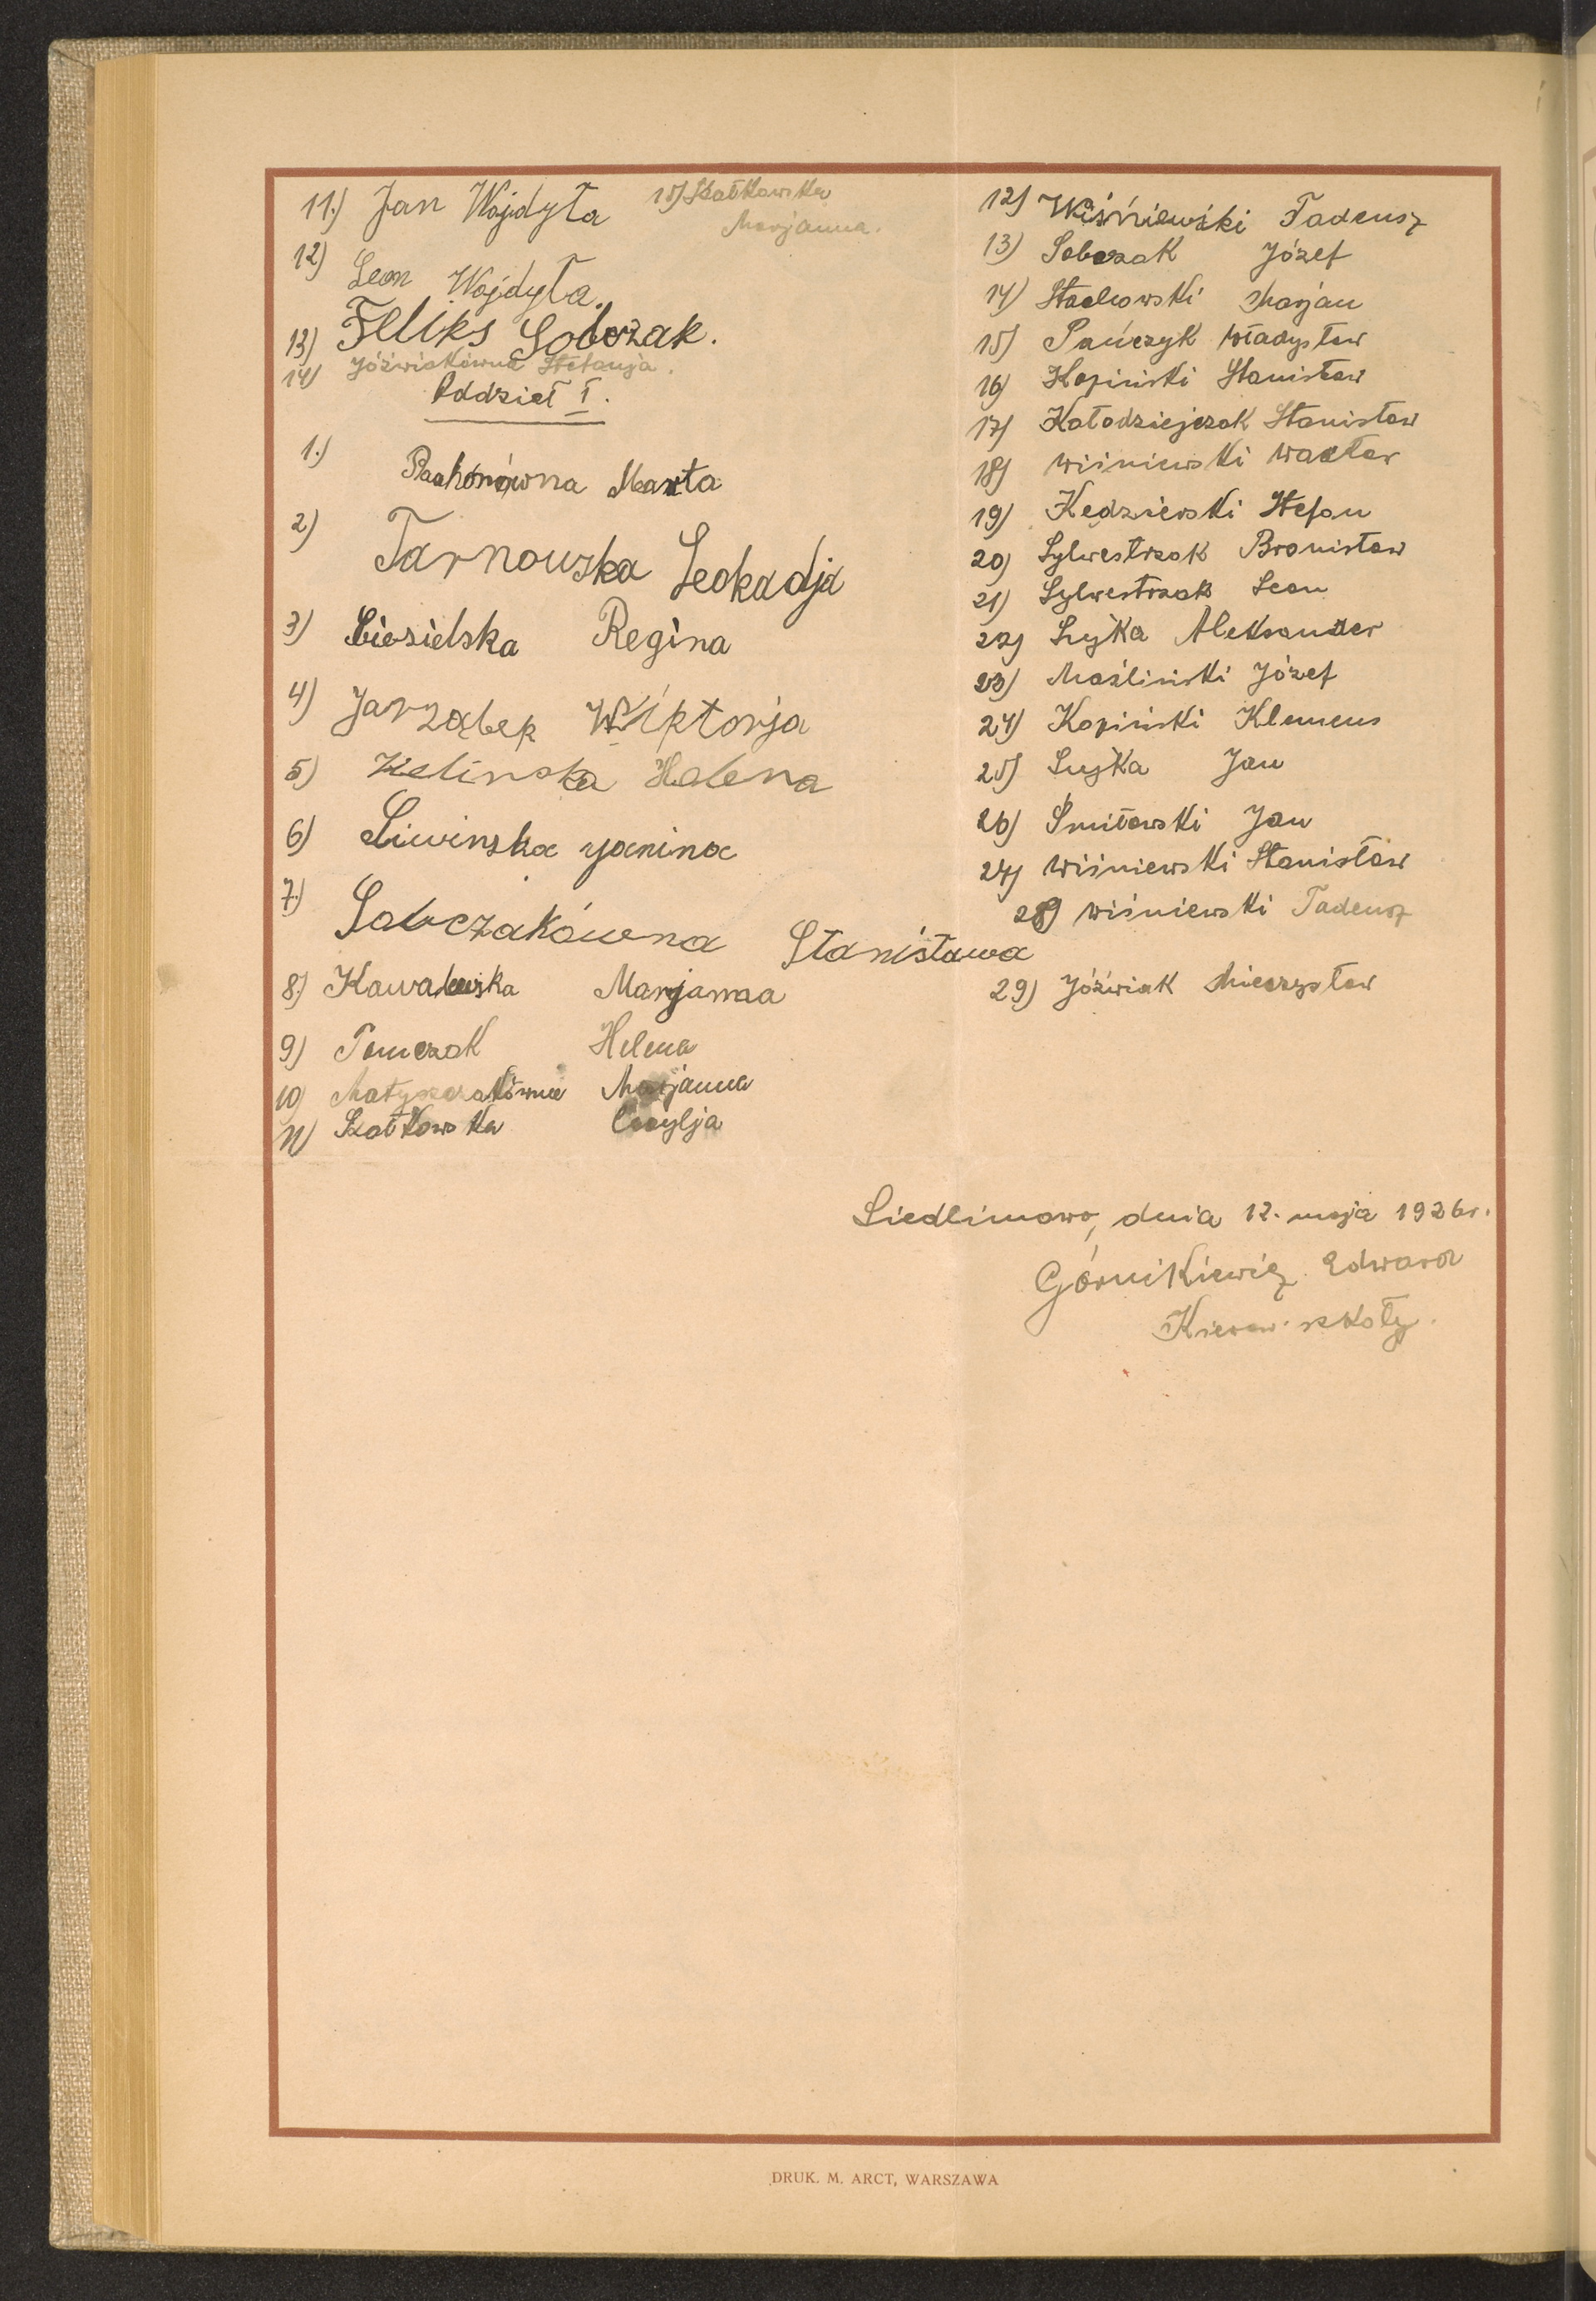 11.) Jan Wojdyła
15) Szatkowska
Marjanna.
12) Leon Wojdyła.
13) Feliks Sobczak.
14) Jóźwiakówna Stefanja.
Oddział I.
1.) Pachonówna Marta
2) Tarnowska Leokadja
3) Ciesielska Regina
4) Jarząbek Wiktorja
5) Zielinska Halena
6) Liwinska Janina
7.) Sobczakówna Stanisława
8.) Kawalewska Marjanna
9) Tomczak Helena
10) Matyszczakówna Marjanna
11) Szatkowska Cecylja
12) Wiśniewski Tadeusz
13) Sobczak Józef
14) Stachowski Marjan
15) Pańczyk Władysław
16) Kopiński Stanisław
17) Kołodziejczak Stanisław
18) Wiśniewski Wacław
19) Kędzierski Stefan
20) Sylwestrzak Bronisław
21) Sylwestrzak Leon
22) Lujka Aleksander
23) Maśliński Józef
24) Kopiński Klemens
25) Lujka Jan
26) Śmiłowski Jan
27) Wiśniewski Stanisław
28) Wiśniewski Tadeusz
29) Jóźwiak Mieczysław
Siedlimowo, dnia 12. maja 1926r.
Górnikiewicz Edward
Kierow. szkoły.
DRUK. M. ARCT, WARSZAWA